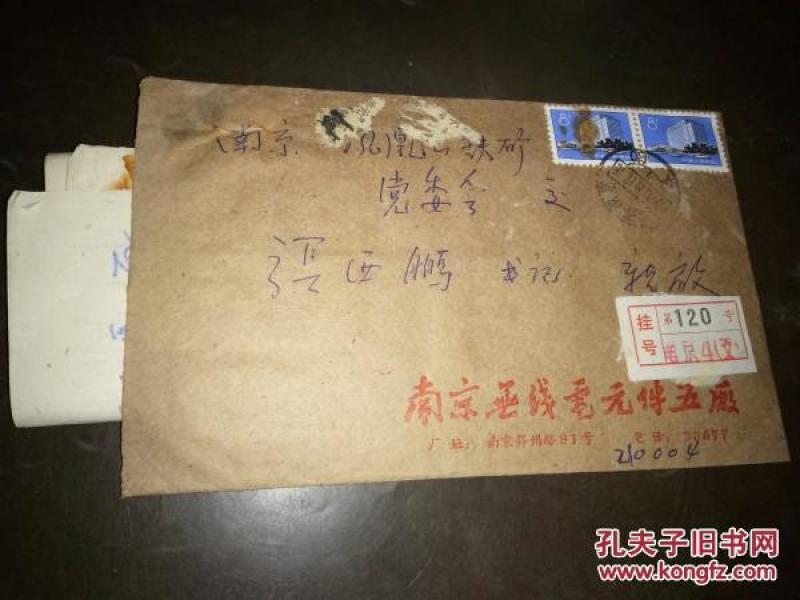 南京 凤凰山铁矿
党委会 交
西鹏 书记 亲启
8 8
挂号 第120号
南京4(支)
南京无线电元件五厂
厂址：南京 路91号 电话：
210004
孔夫子旧书网
www.kongfz.com